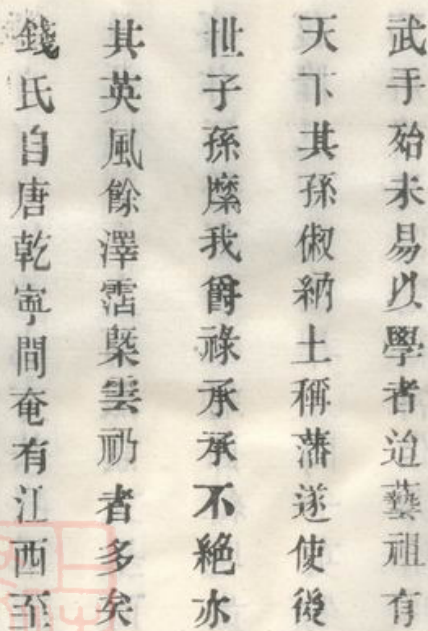 武手殆未易以學者迨藝祖有
天下其孫俶納土稱藩遂使後
世子孫縻我爵祿承承不絶亦
其英風餘澤霑槩雲礽者多矣
錢氏自唐乾寧間奄有江西至